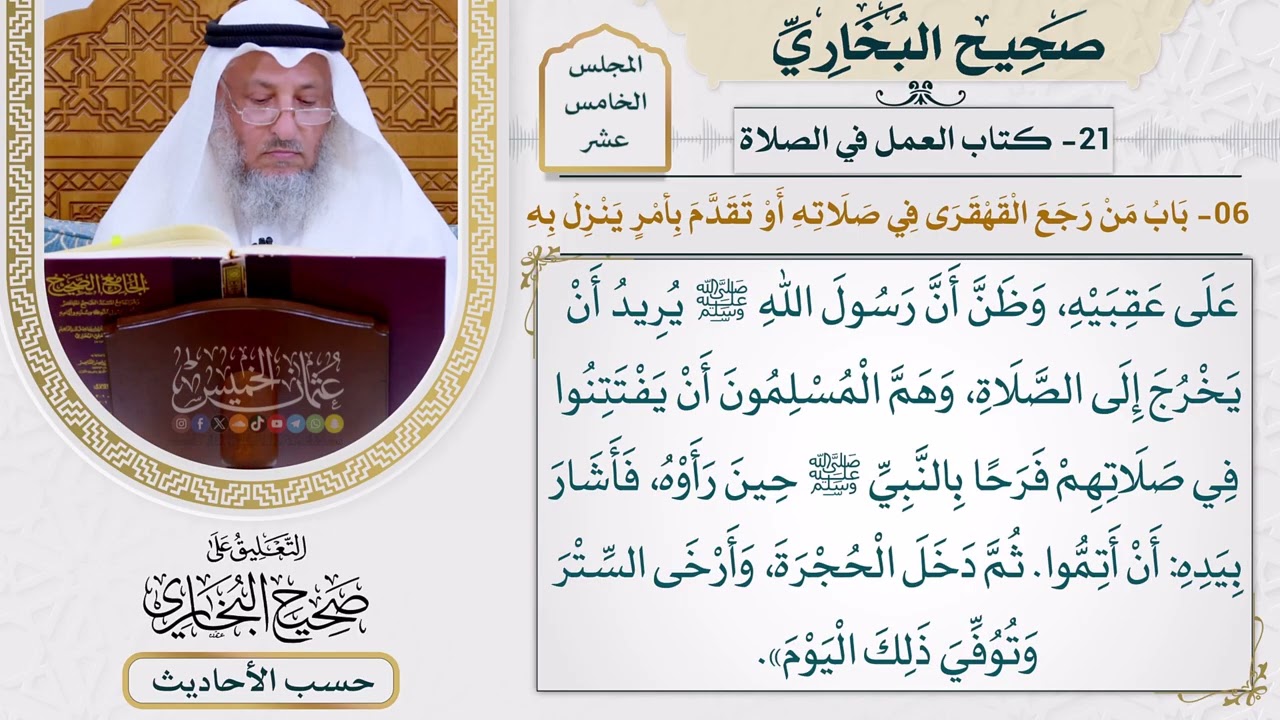 صَحِيحُ البُخَارِيِّ
المجلس
الخامس
عشر
21- كتاب العمل في الصلاة
06- بَابُ مَنْ رَجَعَ الْقَهْقَرَى فِي صَلَاتِهِ أَوْ تَقَدَّمَ بِأَمْرٍ يَنْزِلُ بِهِ
عَلَى عَقِبَيْهِ، وَظَنَّ أَنَّ رَسُولَ اللهِ ﷺ يُرِيدُ أَنْ
يَخْرُجَ إِلَى الصَّلَاةِ، وَهَمَّ الْمُسْلِمُونَ أَنْ يَفْتَتِنُوا
فِي صَلَاتِهِمْ فَرَحًا بِالنَّبِيِّ ﷺ حِينَ رَأَوْهُ، فَأَشَارَ
بِيَدِهِ: أَنْ أَتِمُّوا. ثُمَّ دَخَلَ الْحُجْرَةَ، وَأَرْخَى السِّتْرَ
وَتُوُفِّيَ ذَلِكَ الْيَوْمَ».
الجامع الصحيح
عثمان الخميس
التَّعْلِيقُ عَلَى
صَحِيحِ البُخَارِي
حسب الأحاديث